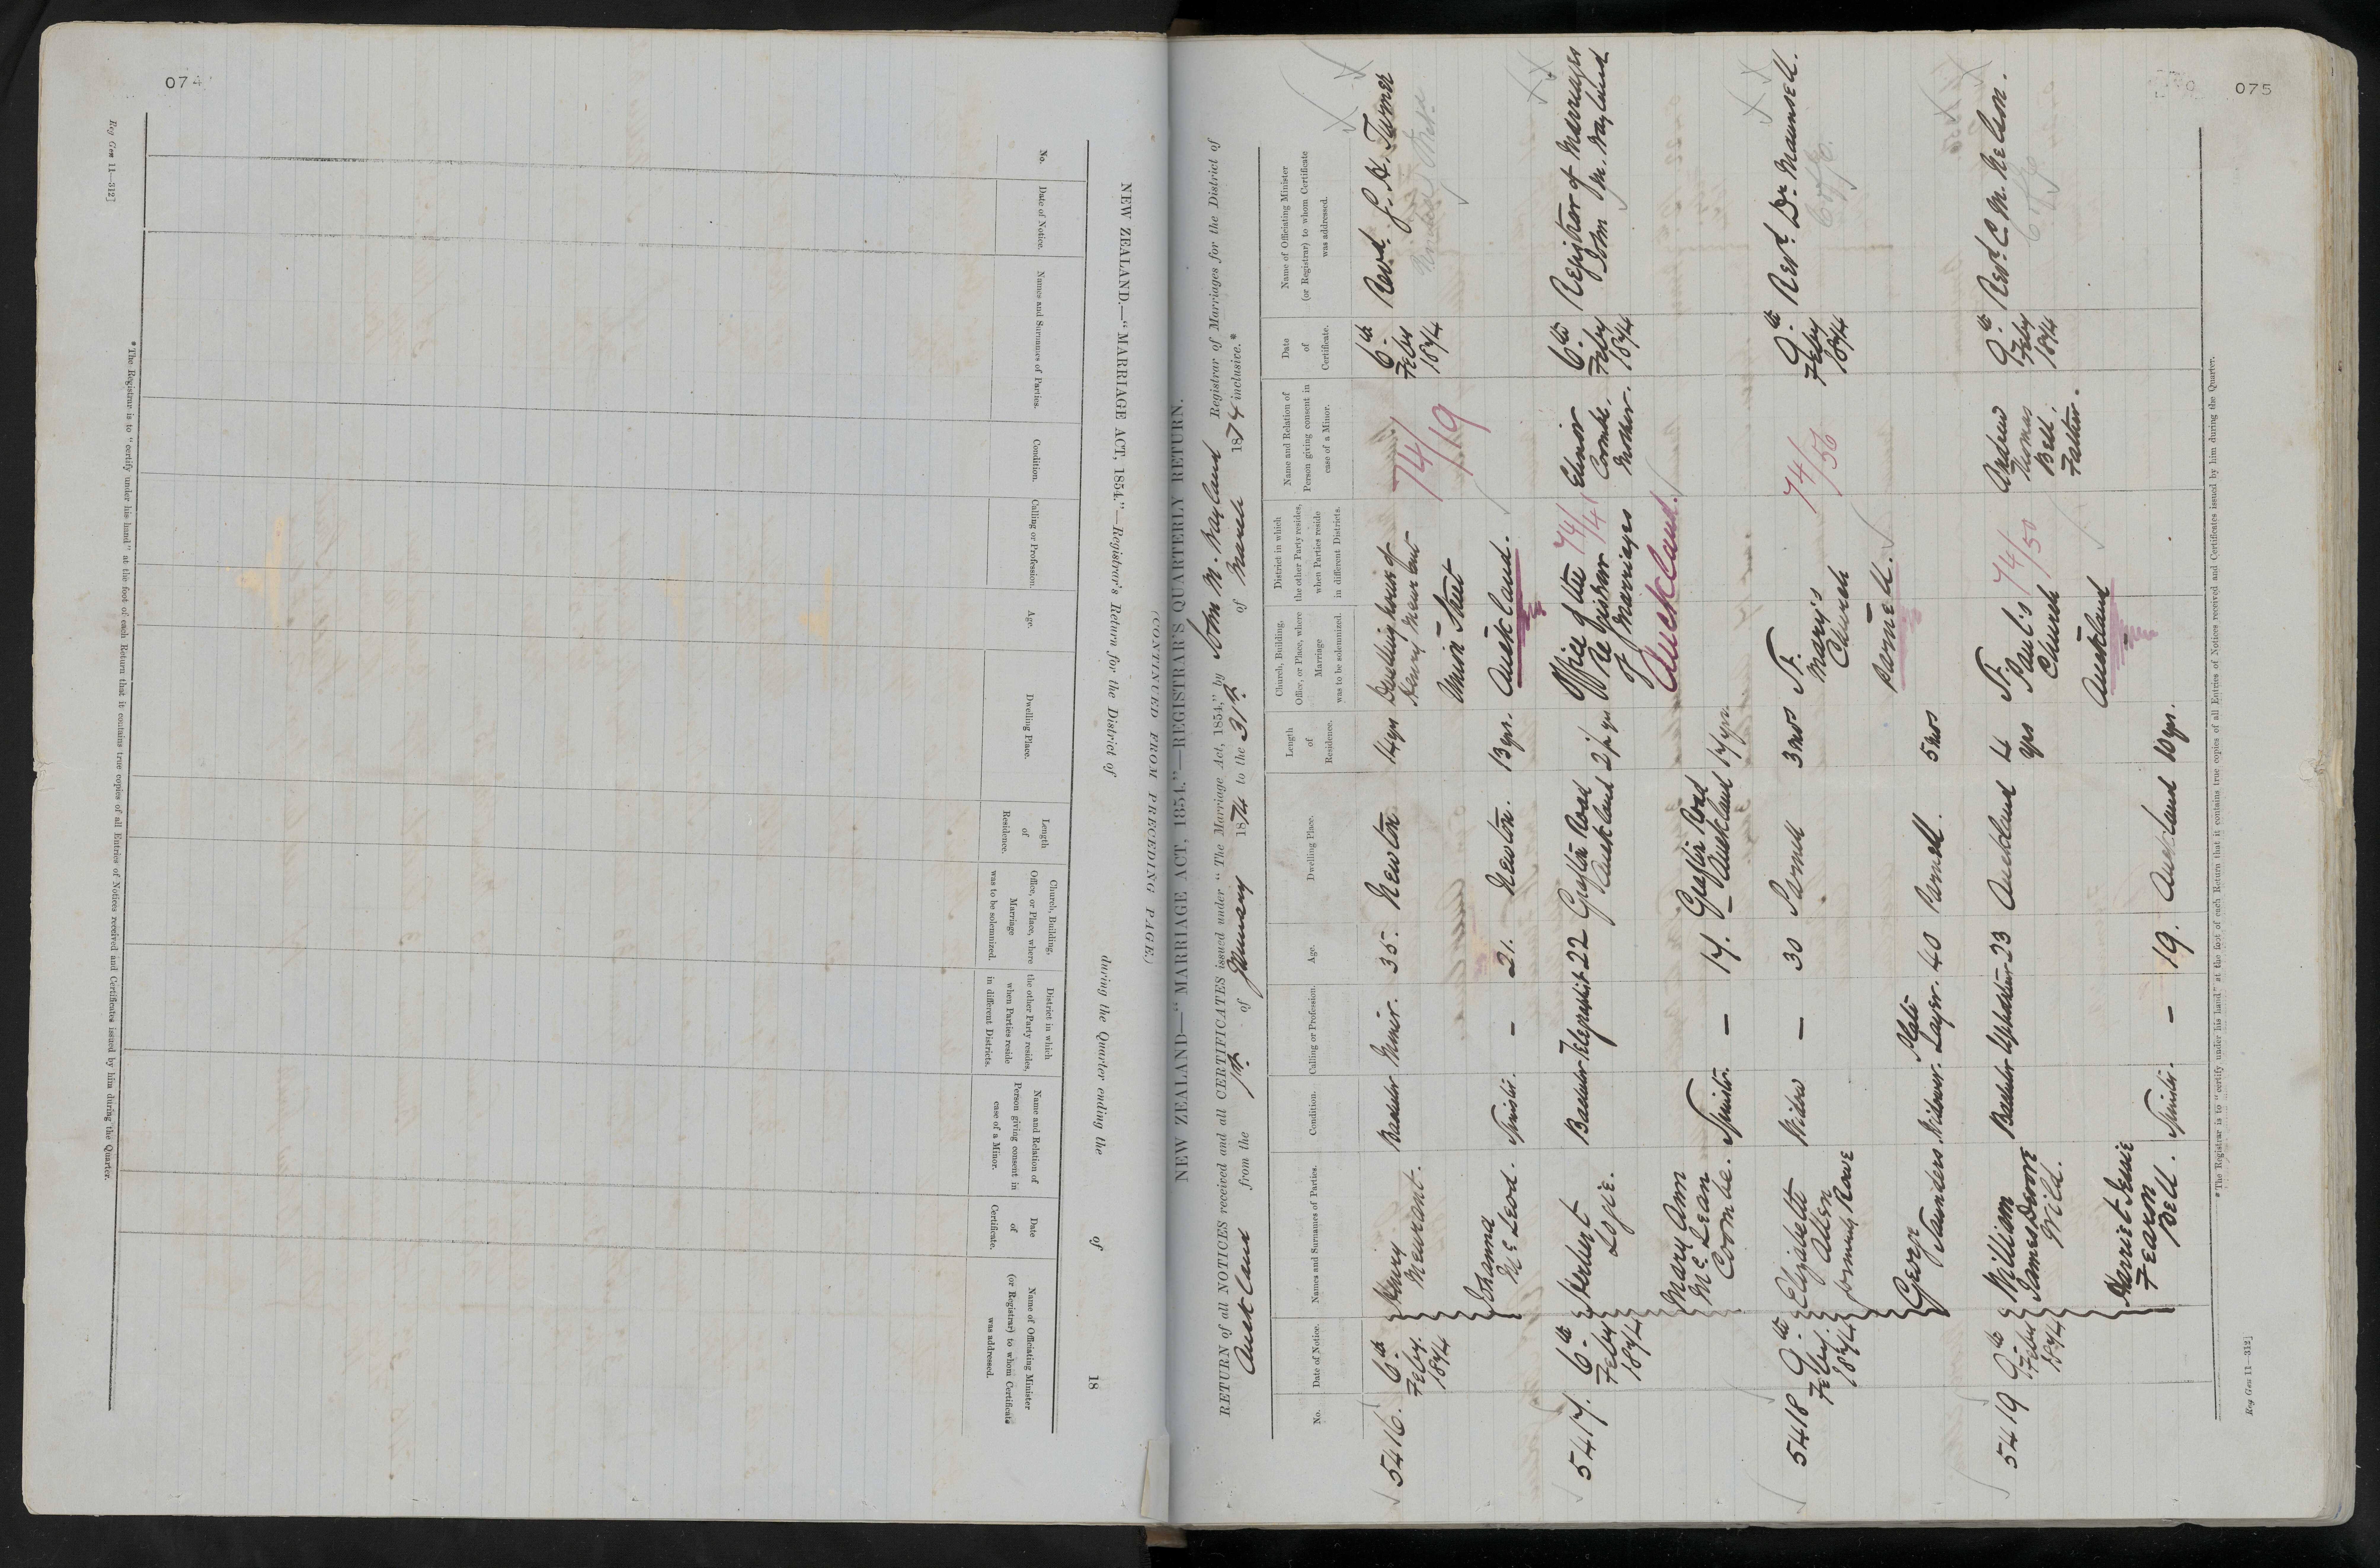 074
Reg Gen 11—312]
NEW ZEALAND.—"MARRIAGE ACT, 1854."—Registrar's Return for the District of during the Quarter ending the of 18
No.
Date of Notice.
Names and Surnames of Parties.
Condition.
Calling or Profession.
Age.
Dwelling Place.
Length
of
Residence.
Church, Building,
Office, or Place, where
Marriage
was to be solemnized.
District in which
the other Party resides,
when Parties reside
in different Districts.
Name and Relation of
Person giving consent in
case of a Minor.
Date
of
Certificate.
Name of Officiating Minister
(or Registrar) to whom Certificate
was addressed.
*The Registrar is to "certify under his hand" at the foot of each Return that it contains true copies of all Entries of Notices received and Certificates issued by him during the Quarter.
(CONTINUED FROM PRECEDING PAGE.)
075
NEW ZEALAND—"MARRIAGE ACT, 1854."—REGISTRAR'S QUARTERLY RETURN.
RETURN of all NOTICES received and all CERTIFICATES issued under "The Marriage Act, 1854," by John M. Wayland Registrar of Marriages for the District of
Auckland from the 1st of January 1874 to the 31st of March 1874 inclusive.*
No.
Date of Notice.
Names and Surnames of Parties.
Condition.
Calling or Profession.
Age.
Dwelling Place.
Length
of
Residence.
Church, Building,
Office, or Place, where
Marriage
was to be solemnized.
District in which
the other Party resides,
when Parties reside
in different Districts.
Name and Relation of
Person giving consent in
case of a Minor.
Date
of
Certificate.
Name of Officiating Minister
(or Registrar) to whom Certificate
was addressed.
5416.
6th
Feby.
1874
Henry
Bachelor
Miner.
35.
Newton
14 yrs
Dwelling house of
Henry
Union Street
Auckland.
74/
/19
6th
Feby
1874
Revd. G. H. Turner
Johanna
McLeod.
Spinster.
–
21.
Newton.
13 yrs.
5417.
6th
Feby
1874
Herbert
Logie.
Bachelor
Telegraphist
22
Grafton Road
Auckland
2½ yrs
Office of the
Registrar
of Marriages
Auckland.
74/
/41
Elinor
Coombe.
Mother.
6th
Feby
1874
Registrar of Marriages
John M. Wayland
Mary Ann
McLean
Coombe.
Spinster.
–
17.
Grafton Road
Auckland
17 yrs.
5418
9th
Feby.
1874
Elizabeth
Allen
formerly Rowe
Widow
–
30
Parnell
3 mos
St.
Mary's
Church
Parnell.
74/
/56
9th
Feby
1874
Revd. Dr. Maunsell.
George
Saunders
Widower.
Plate
Layer.
40
Parnell.
5 mos
5419
9th
Feby
1874
William
James
Wild.
Bachelor
Upholsterer
23
Auckland
4
yrs
St.
Paul's
Church
Auckland
74/
/50
Andrew
Thomas
Bell.
Father.
9th
Feby
1874
Revd. C. M. Nelson.
Harriet
Fearon
Bell.
Spinster.
–
19.
Auckland
10 yrs.
*The Registrar is to "certify under his hand" at the foot of each Return that it contains true copies of all Entries of Notices received and Certificates issued by him during the Quarter.
Reg Gen 11—312]